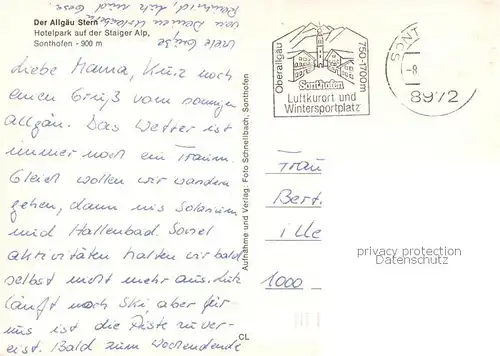 Der Allgäu Stern
Hotelpark auf der Staiger Alp,
Sonthofen - 900 m
Liebe Mama, Kurz noch
einen Gruß vom sonnigen
Allgäu. Das Wetter ist
immer noch ein Traum.
Gleich wollen wir wandern
gehen, dann ins Solarium
und Hallenbad. Soviel
Aktivitäten halten wir bald
selbst nicht mehr aus. Lutz
läuft noch Ski, aber für
uns ist die Piste zu ver-
eist. Bald zum Wochenende
viele Grüße
von Deinen Urlaubern
und
CL
Aufnahme und Verlag: Foto Schnellbach, Sonthofen
Oberallgäu
750-1700m
Sonthofen
Luftkurort und
Wintersportplatz
SONT
-8.
8972
Frau
Bert.
ille
1000
privacy protection
Datenschutz